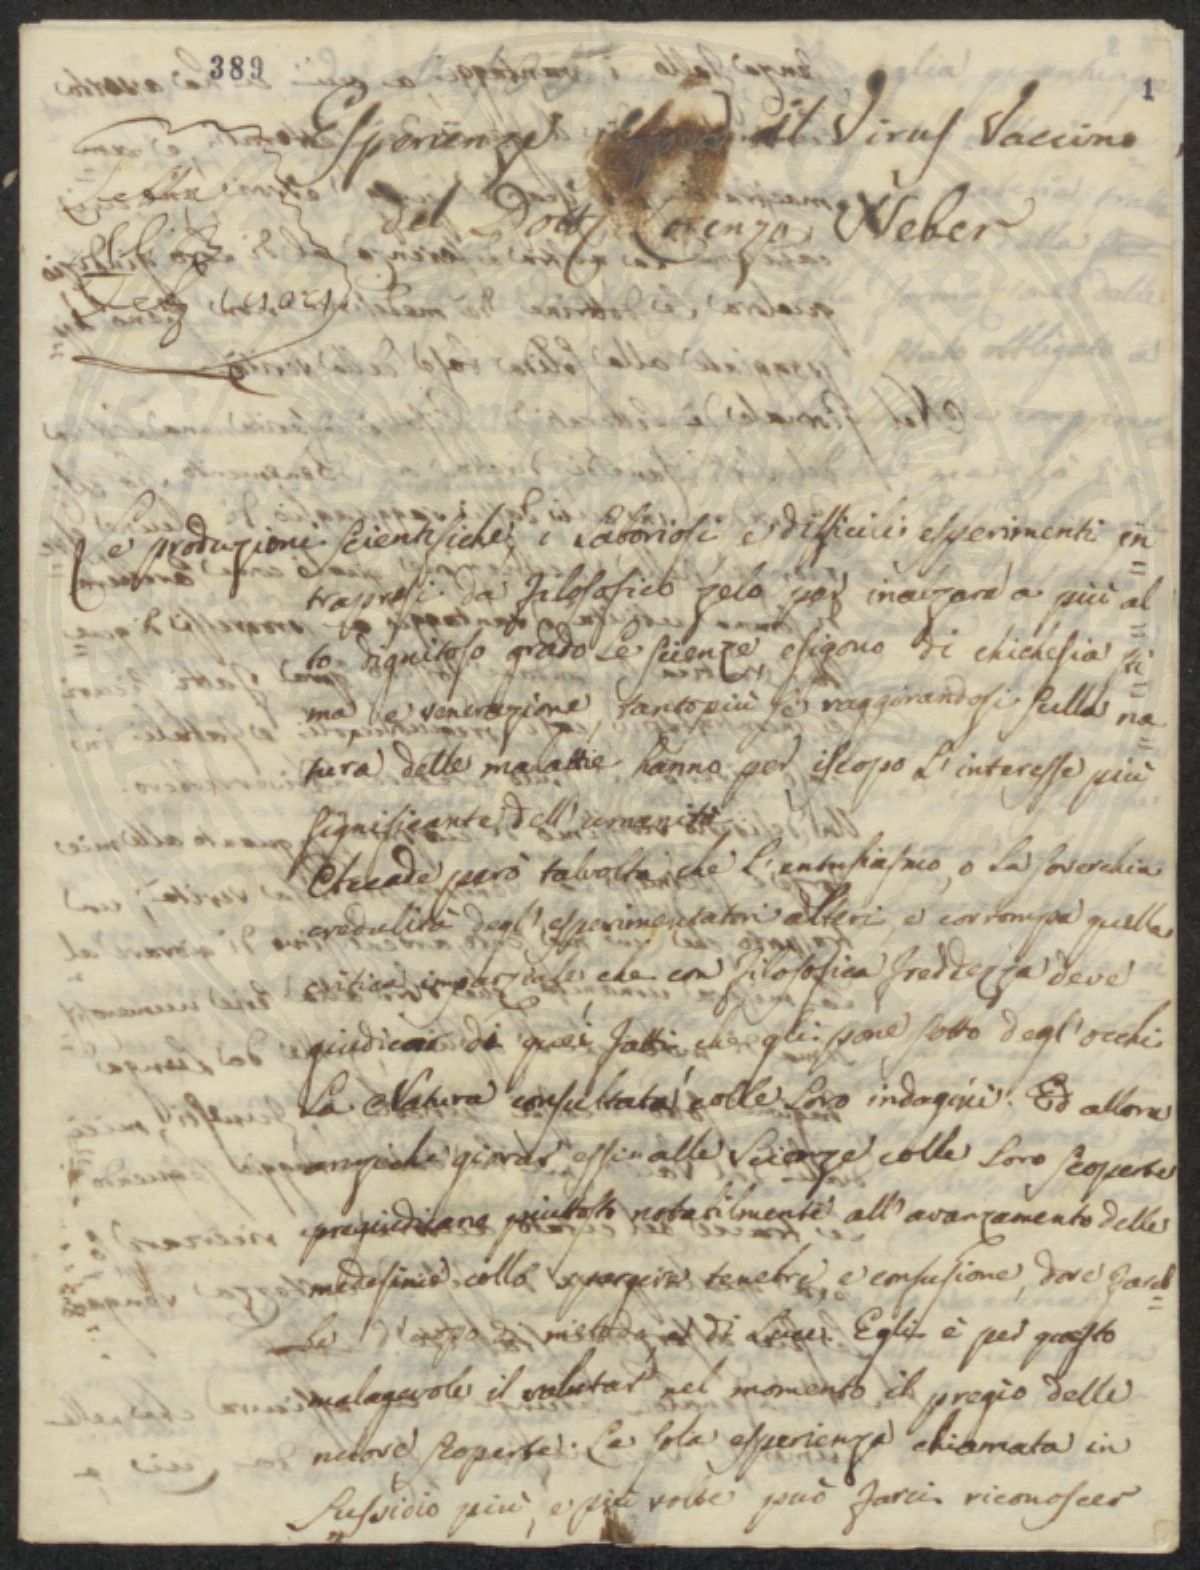 389
1
Esperienze sopra il Virus Vaccino
del Dott. Lorenzo Weber
Le produzioni scientifiche, i laboriosi e difficili esperimenti in=
trapresi da filosofico zelo per inalzare a più al=
to dignitoso grado le scienze esigono di chichesia sti=
ma e venerazione, tanto più se raggirandosi sulla na=
tura delle malattie hanno per iscopo l'interesse più
significante dell'umanità.
Accade però talvolta che l'entusiasmo, o la soverchia
credulità degl'esperimentatori alteri, e corrompa quella
critica imparziale che con filosofica freddezza deve
giudicar di quei fatti che gli pone sotto degl'occhi
la Natura consultata colle loro indagini. Ed allora
anziche giovar essi alle scienze colle loro scoperte
pregiudicano piuttosto notabilmente all'avanzamento delle
medesime collo spargere tenebre, e confusione, dove fareb=
be d'uopo di metodo, e di luce. Egli è per questo
malagevole il valutar nel momento il pregio delle
nuove scoperte. La sola esperienza chiamata in
sussidio più, e più volte può farci riconoscer